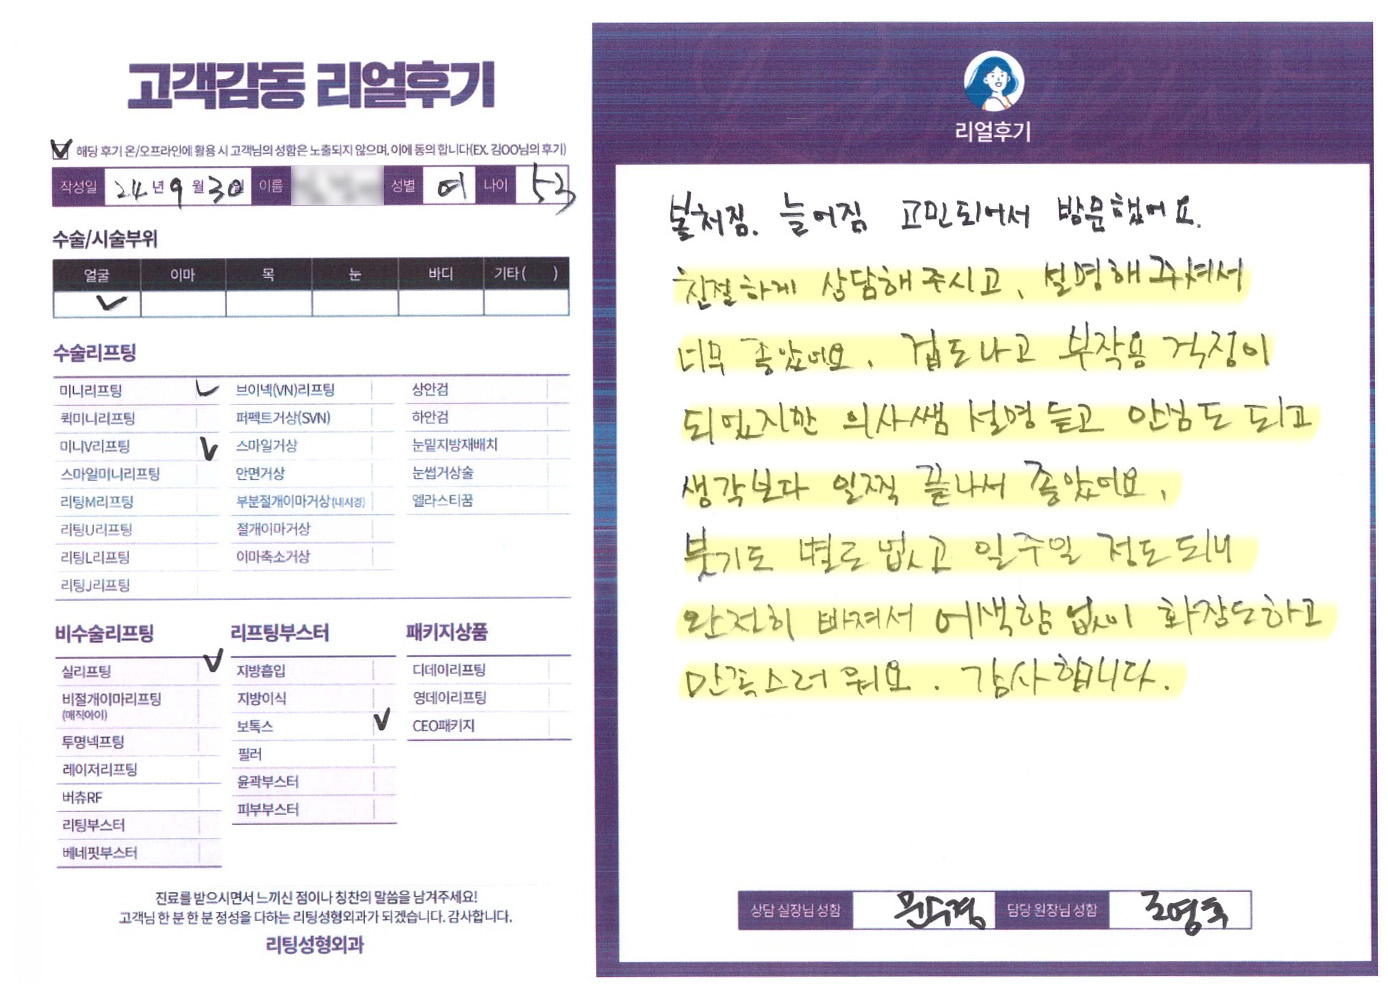 고객감동 리얼후기
✓ 해당 후기 온/오프라인에 활용 시 고객님의 성함은 노출되지 않으며, 이에 동의 합니다(EX. 김OO님의 후기)
작성일 24년 9월 30일 이름 성별 여 나이 53
수술/시술부위
얼굴 이마 목 눈 바디 기타 ( )
✓
수술리프팅
미니리프팅 ✓ 브이넥(VN)리프팅 상안검
퀵미니리프팅 퍼펙트거상(SVN) 하안검
미니V리프팅 ✓ 스마일거상 눈밑지방재배치
스마일미니리프팅 안면거상 눈썹거상술
리팅M리프팅 부분절개이마거상(내시경) 엘라스티꿈
리팅U리프팅 절개이마거상
리팅L리프팅 이마축소거상
리팅J리프팅
비수술리프팅 리프팅부스터 패키지상품
실리프팅 ✓ 지방흡입 디데이리프팅
비절개이마리프팅 지방이식 영데이리프팅
(매직아이)
보톡스 ✓ CEO패키지
투명넥프팅 필러
레이저리프팅 윤곽부스터
버츄RF 피부부스터
리팅부스터
베네핏부스터
진료를 받으시면서 느끼신 점이나 칭찬의 말씀을 남겨주세요!
고객님 한 분 한 분 정성을 다하는 리팅성형외과가 되겠습니다. 감사합니다.
리팅성형외과
리얼후기
볼처짐. 늘어짐 고민되어서 방문했어요.
친절하게 상담해주시고, 설명해주셔서
너무 좋았어요. 겁도나고 부작용 걱정이
되었지만 의사쌤 설명듣고 안심도 되고
생각보다 일찍 끝나서 좋았어요.
붓기도 별로 없고 일주일 정도 되니
완전히 빠져서 어색함 없이 화장도하고
만족스러워요. 감사합니다.
상담 실장님 성함 문수경 담당 원장님 성함